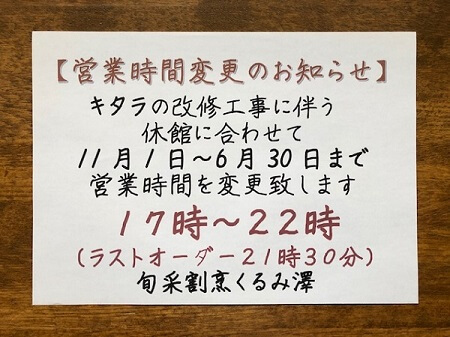 【営業時間変更のお知らせ】
キタラの改修工事に伴う
休館に合わせて
11月1日～6月30日まで
営業時間を変更致します
17時～22時
(ラストオーダー21時30分)
旬采割烹くるみ澤